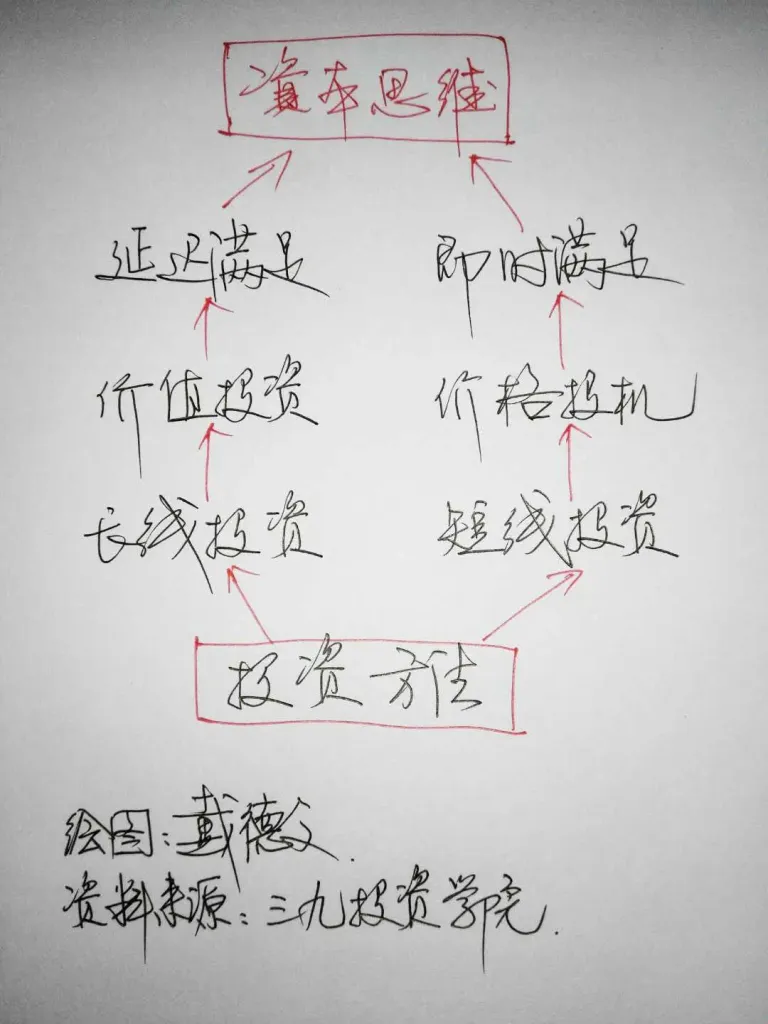 资本思维
延迟满足 即时满足
价值投资 价格投机
长线投资 短线投资
投资方法
绘图:戴德文.
资料来源:三九投资学院.